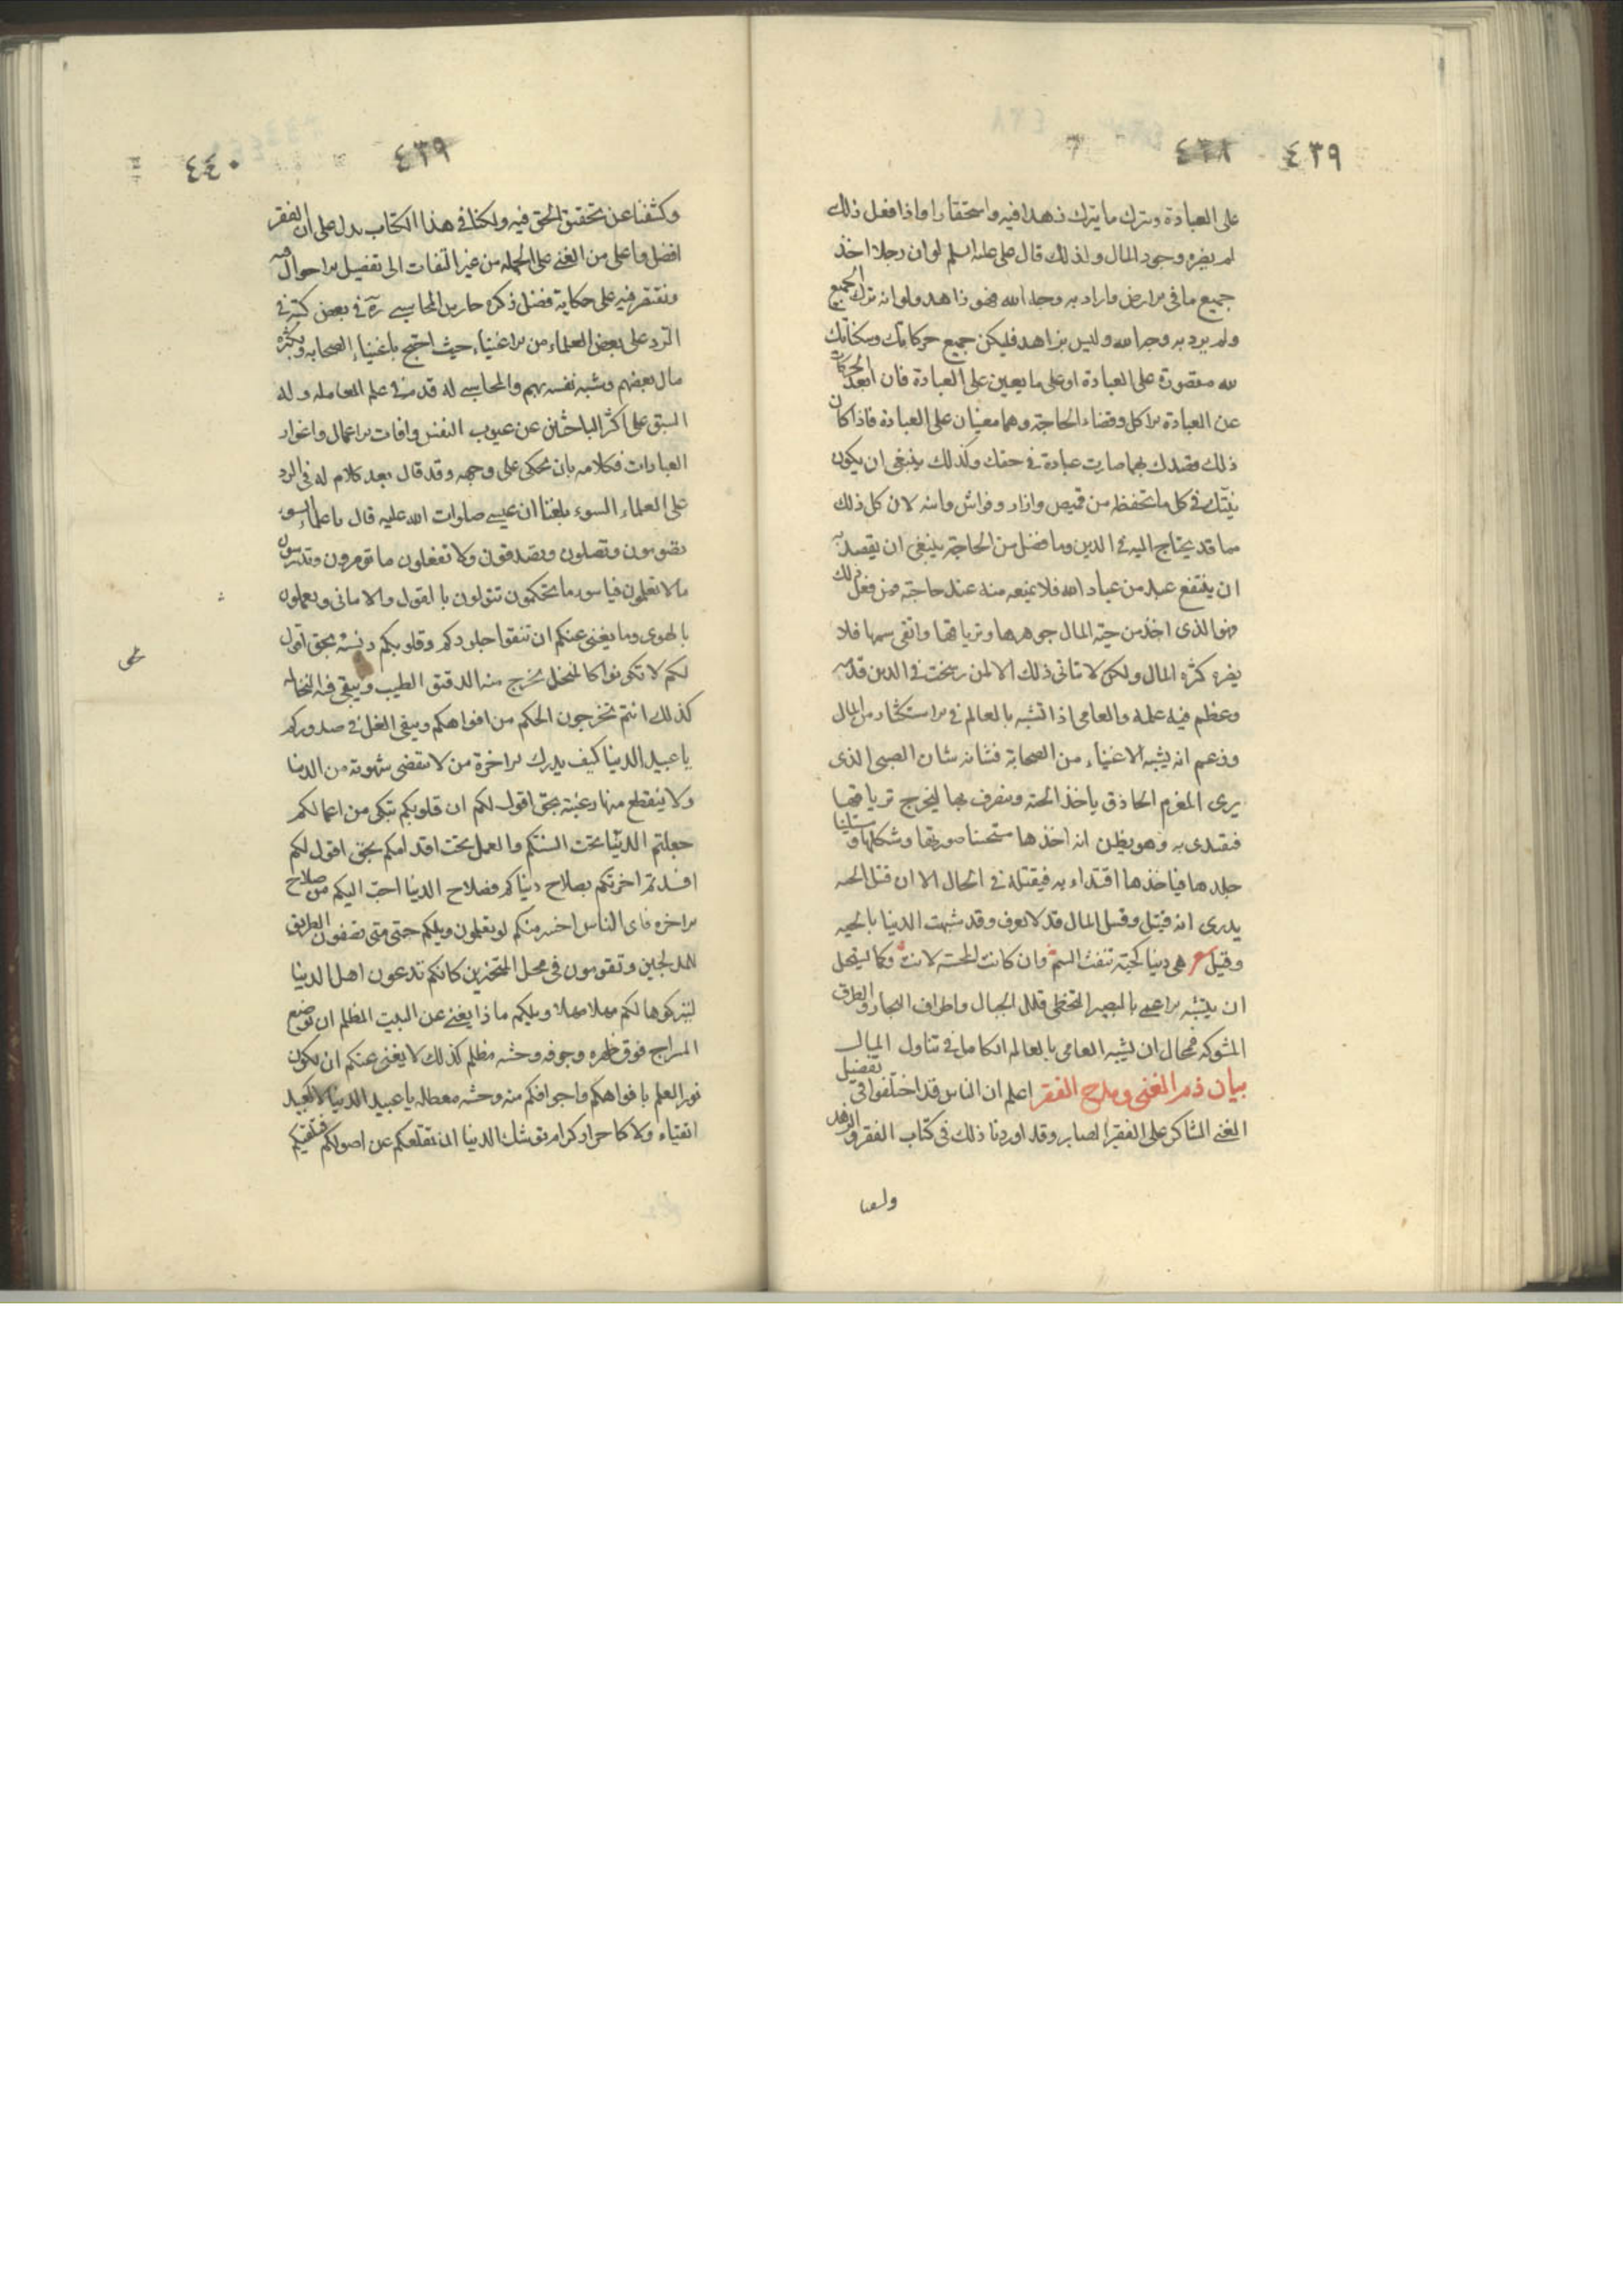 ٤٣٩ ٤٣٨
على العبادة ويترك ما يترك زهدا فيه واستحقارا واذا فعل ذلك
لم يضره وجود المال ولذلك قال علي عليه السلم لو ان رجلا اخذ
جميع ما في الارض واراد به وجه الله فهو زاهد ولو انه ترك الجميع
ولم يرد به وجه الله وليس بزاهد فليكن جميع حركاتك وسكناتك
لله مقصورة على العبادة او على ما يعين على العبادة فان ابعد الحركات
عن العبادة الاكل وقضاء الحاجة وهما معينان على العبادة فاذا كان
ذلك مقصدك بهما صارت عبادة في حقك وكذلك ينبغي ان يكون
نيتك في كل ما يحفظك من قميص وازار وفراش وانيه لان كل ذلك
مما قد يحتاج اليه في الدين وما فضل من الحاجة ينبغي ان يقصد به
ان ينتفع عبد من عباد الله فلا يمنعه منه عند حاجته فمن فعل ذلك
فهو الذى اخذ من حية المال جوهرها وترياقها واتقى سمها فلا
يضره كثرة المال ولكن لا تاتى ذلك الا لمن رسخت في الدين قدمه
وعظم فيه علمه والعامى اذا تشبه بالعالم في الاستكثار من المال
وزعم انه يشبه الاغنياء من الصحابة فشانه شان الصبى الذى
يرى المعزم الحاذق ياخذ الحية ويتصرف بها ليخرج ترياقها
فيقتدى به وهو يظن انه اخذها مستحسنا صورتها وشكلها ومستلينا
جلدها فياخذها اقتداء به فيقتله في الحال الا ان قتيل الحية
يدرى انه قتيل وقتيل المال قد لا يعرف وقد شبهت الدنيا بالحيه
وقيل شعر هى دنيا كحية تنفث السم وان كانت المجسة لانت وكما يستحيل
ان يتشبه الاعمى بالبصير في تخطى قلل الجبال واطراف البحار والطرق
المشوكه فمحال ان يشبه العامى بالعالم الكامل في تناول المال
بيان ذم الغنى ومدح الفقر اعلم ان الناس قد اختلفوا في تفضيل
الغنى الشاكر على الفقير الصابر وقد اوردنا ذلك في كتاب الفقر والزهد
وكشفنا
٤٣٩ ٤٤٠
وكشفنا عن تحقيق الحق فيه ولكنا في هذا الكتاب ندل على ان الفقر
افضل واعلى من الغنى على الجمله من غير التفات الى تفصيل الاحوال
ونقتصر فيه على حكاية فصل ذكره حارث المحاسبي في بعض كتبه في
الرد على بعض العلماء من الاغنياء حيث احتج باغنياء الصحابه وبكثرة
مال بعضهم وشبه نفسه بهم والمحاسبي له قدمة في علم المعامله وله
السبق على اكثر الباحثين عن عيوب النفس وافات الاعمال واغوار
العبادات فكلامه بان يحكى على وجهه وقد قال بعد كلام له في الرد
على العلماء السوء بلغنا ان عيسى صلوات الله عليه قال يا علماء السوء
تصومون وتصلون وتصدقون ولا تفعلون ما تومرون وتدرسون
مالا تعلمون فيا سوء ما تحكمون تتولون بالقول والامانى وتعملون
بالهوى وما يغنى عنكم ان تنقوا جلودكم وقلوبكم دنسة بحق اقول
لكم لا تكونوا كالمنخل يخرج منه الدقيق الطيب ويبقى فيه النخاله
كذلك انتم تخرجون الحكم من افواهكم ويبقى الغل في صدوركم
يا عبيد الدنيا كيف يدرك الاخرة من لا تنقضى شهوته من الدنيا
ولا ينقطع منها رغبته بحق اقول لكم ان قلوبكم تبكى من اعمالكم
جعلتم الدنيا تحت السنتكم والعمل تحت اقدامكم بحق اقول لكم
افسدتم اخرتكم بصلاح دنياكم فصلاح الدنيا احب اليكم من صلاح
الاخره فاى الناس اخسر منكم لو تعلمون ويلكم حتى متى تصفون الطريق
للمدلجين وتقومون في محل المتحيرين كانكم تدعون اهل الدنيا
ليتركوها لكم مهلا مهلا ويلكم ماذا يغنى عن البيت المظلم ان توضع
السراج فوق ظهره وجوفه وحشه مظلم كذلك لا يغنى عنكم ان يكون
نور العلم بافواهكم واجوافكم منه وحشه معطله يا عبيد الدنيا لا كعبيد
اتقياء ولا كاحرار كرام توشك الدنيا ان تقلعكم عن اصولكم فتلقيكم